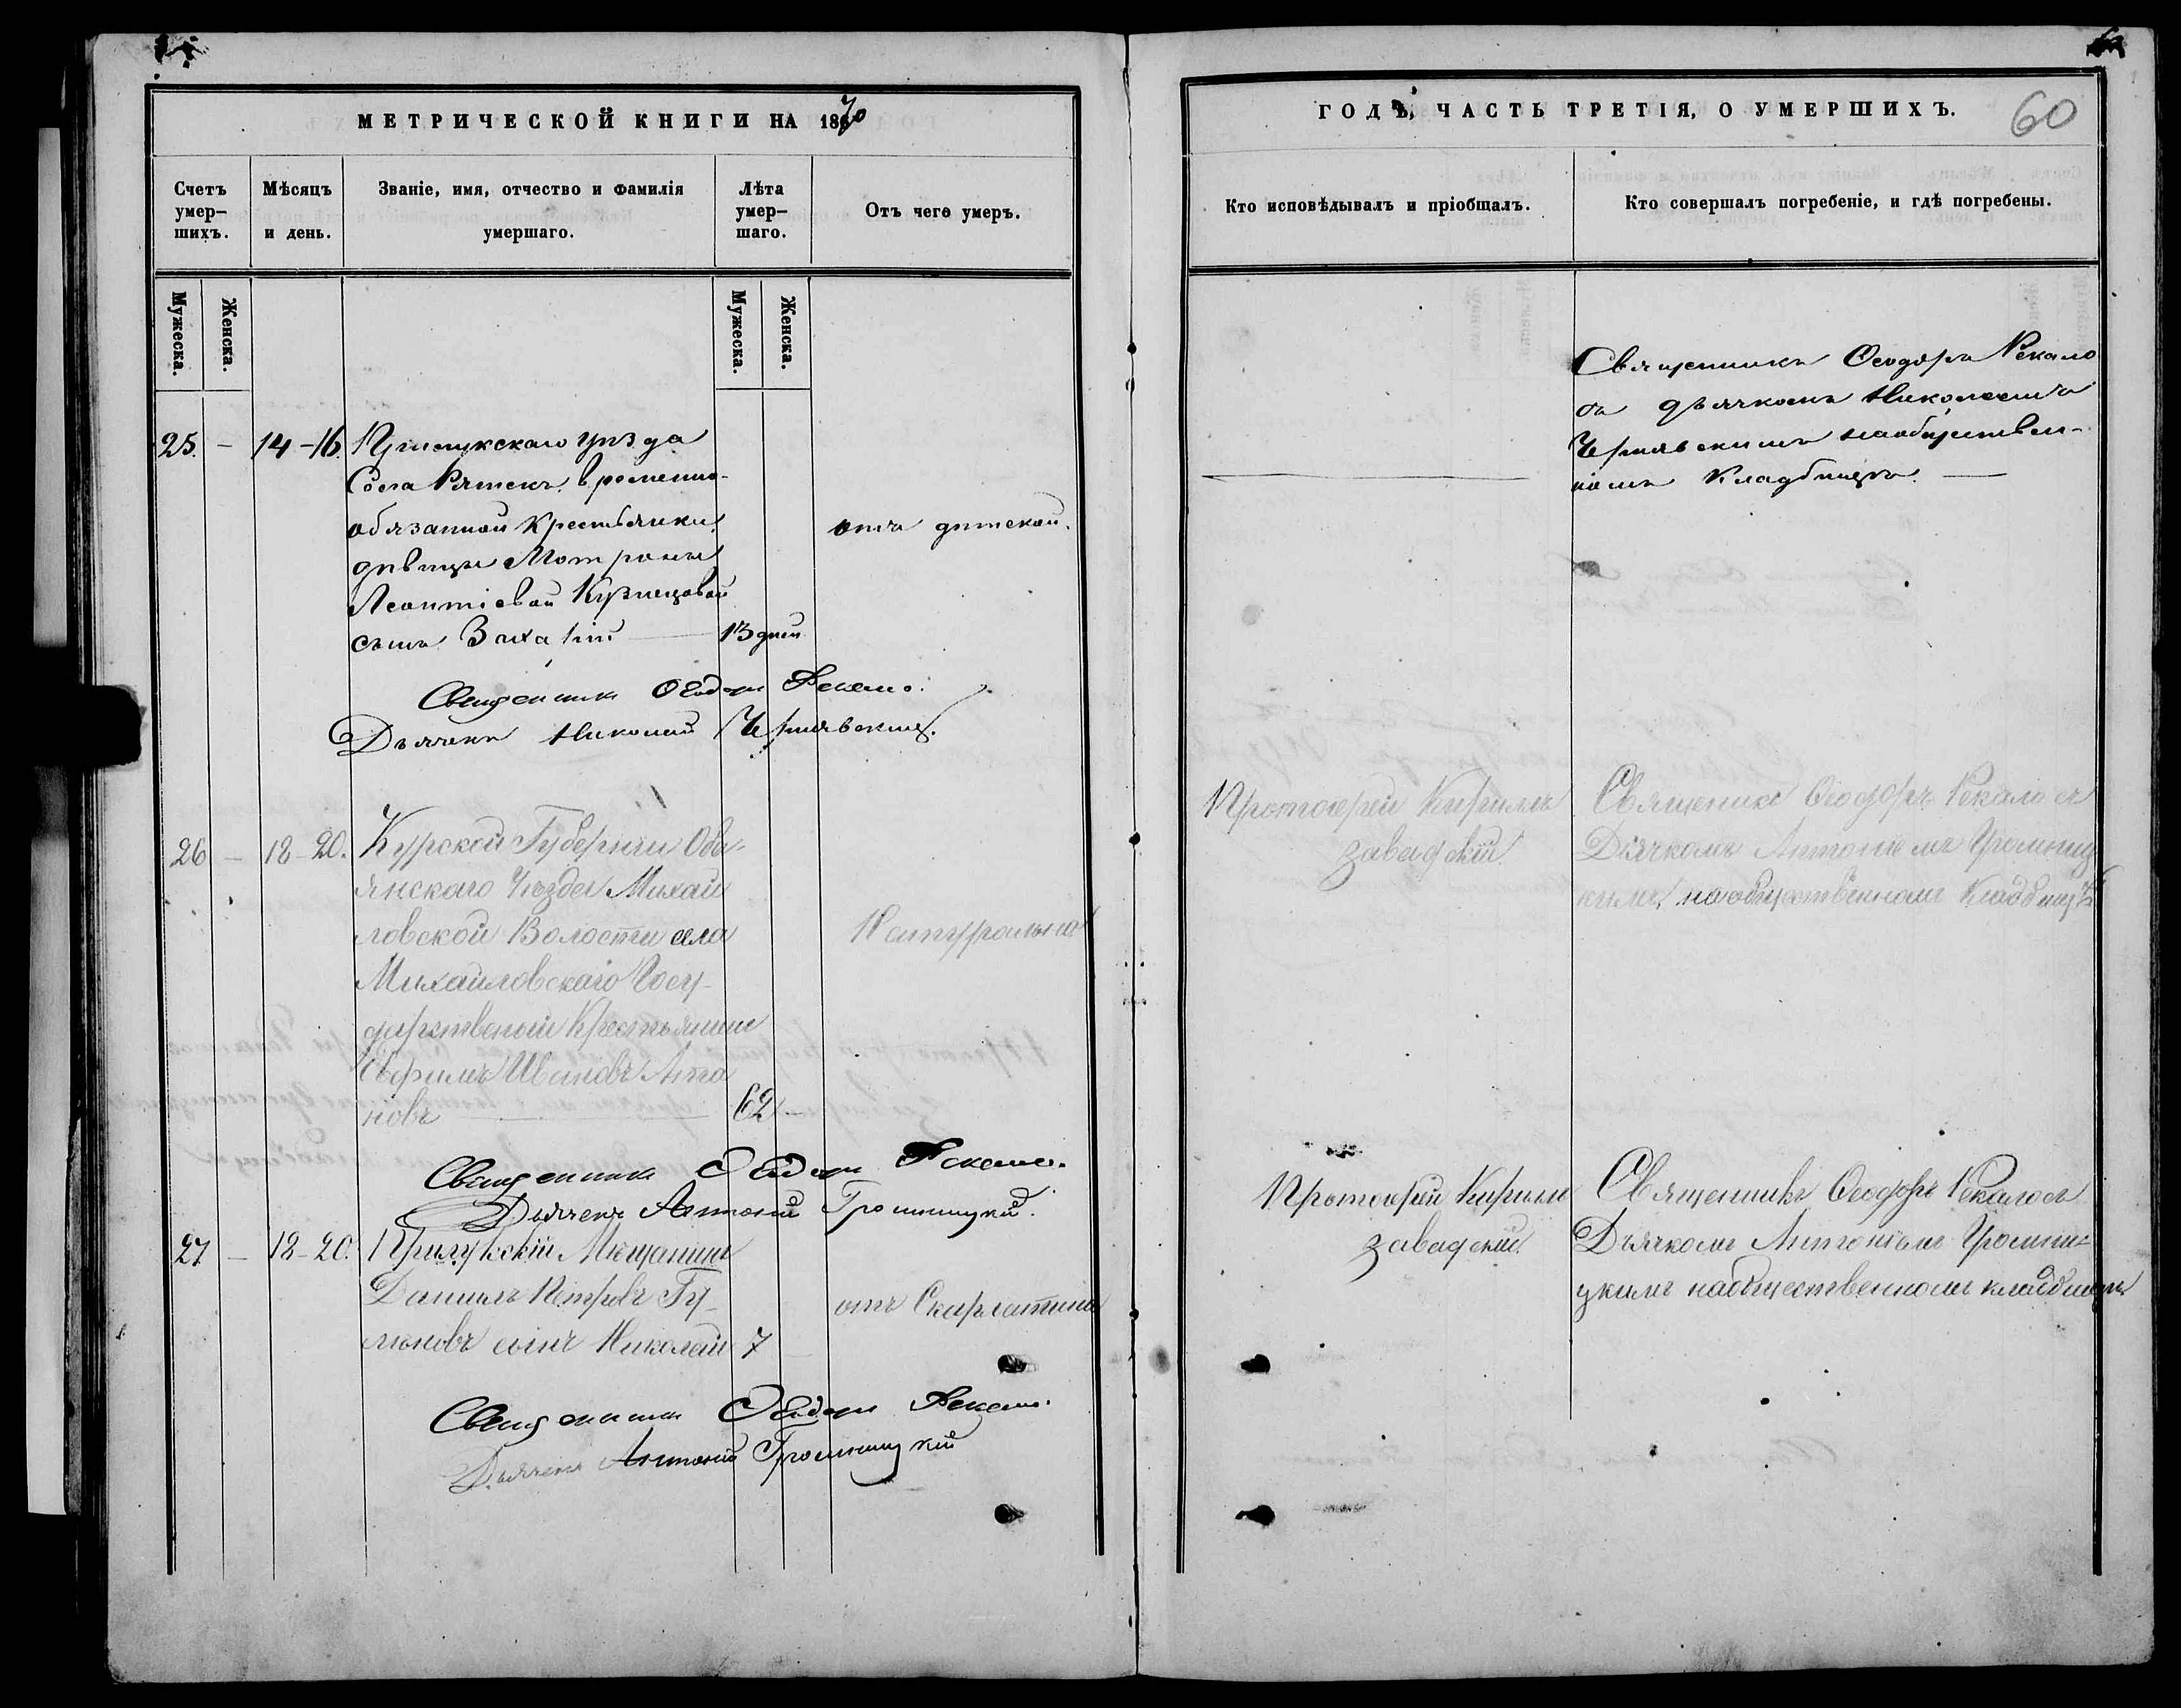 МЕТРИЧЕСКОЙ КНИГИ НА 1870
Счетъ умер-шихъ.
Мѣсяцъ и день.
Званіе, имя, отчество и фамилія умершаго.
Лѣта умер-шаго.
Отъ чего умеръ.
Мужеска.
Женска.
Мужеска.
Женска.
25. — 14-16. Прилукскаго уѣзда
Села Рятекъ временно-
обязанной Крестьянки
дѣвицы Мотроны
Леонтіевой Кузнецовой
сынъ Захарій — 13 дней
отъ дѣтской.
Священникъ Ѳеодоръ Рекало.
Дьячекъ Николай Чернявскій.
26 — 18-20. Курской Губерніи Обо-
янскаго Уѣзда Михай
ловской Волости села
Михайловскаго Госу-
дарственый Крестьянинъ
Ефимъ Ивановъ Анто
новъ — 62 —
Натурально
Священникъ Ѳеодоръ Рекало.
Дьячекъ Антоній Громницкій.
27 — 18-20. Прилукскій Мещанинъ
Даниилъ Петровъ Гу-
сынъ Николай 7 —
отъ Скарлатина
Священникъ Ѳеодоръ Рекало.
Дьячекъ Антоній Громницкій
ГОДЪ, ЧАСТЬ ТРЕТІЯ, О УМЕРШИХЪ.
60
Кто исповѣдывалъ и пріобщалъ.
Кто совершалъ погребеніе, и гдѣ погребены.
Священникъ Ѳеодоръ Рекало
съ дьячкомъ Николаемъ
Чернявскимъ наобществен-
номъ Кладбищѣ. —
Протоіерей Кирилъ
Завадскій.
Священикъ Ѳеодоръ Рекало съ
Дьячкомъ Антоніемъ Громниц
кимъ, на общественномъ Кладбищѣ
Протоіерей Кирилъ
Завадский.
Священникъ Ѳеодоръ Рекало съ
Дьячкомъ Антоніемъ Громни-
цкимъ наобщественномъ кладбищѣ